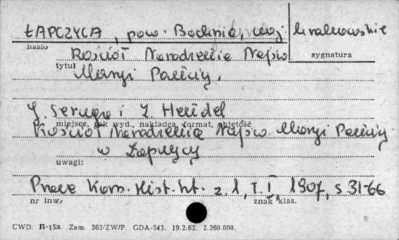 ŁAPCZYCA, pow. Bochnia, woj. krakowskie
hasło
sygnatura
Kościół Narodzenia Najśw.
tytuł
Maryi Panny,
miejsce, rok wyd., nakładca, format, objętość
Kościół Narodzenia Najśw. Maryi Panny
w Łapczycy
uwagi:
Prace Kom. Hist. Szt. z. 1, T. I, 1907, s 31-66
nr inw.
znak klas.
CWD. B-15a Zam. 363/ZW/P. GDA-543. 19.2.62. 2.260.000.